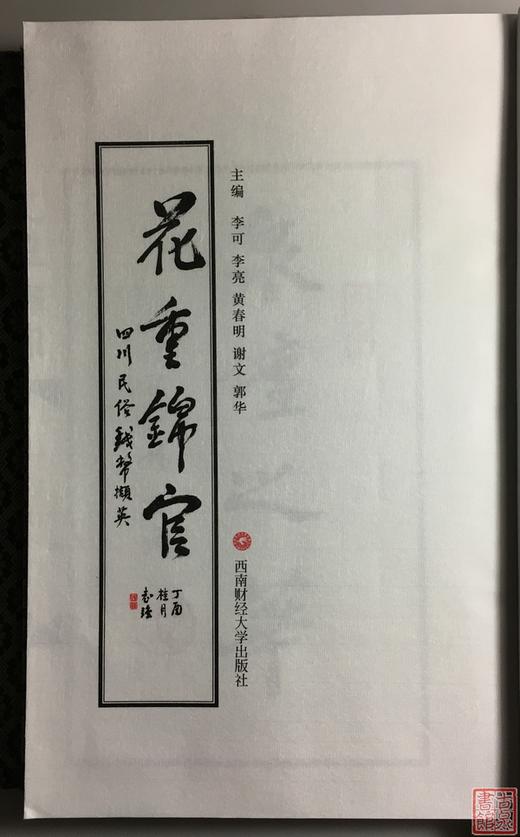 主编 李可 李亮 黄春明 谢文 郭华
西南财经大学出版社
花重錦官
四川民俗錢幣擷英
丁酉
桂月
尚泉
書館